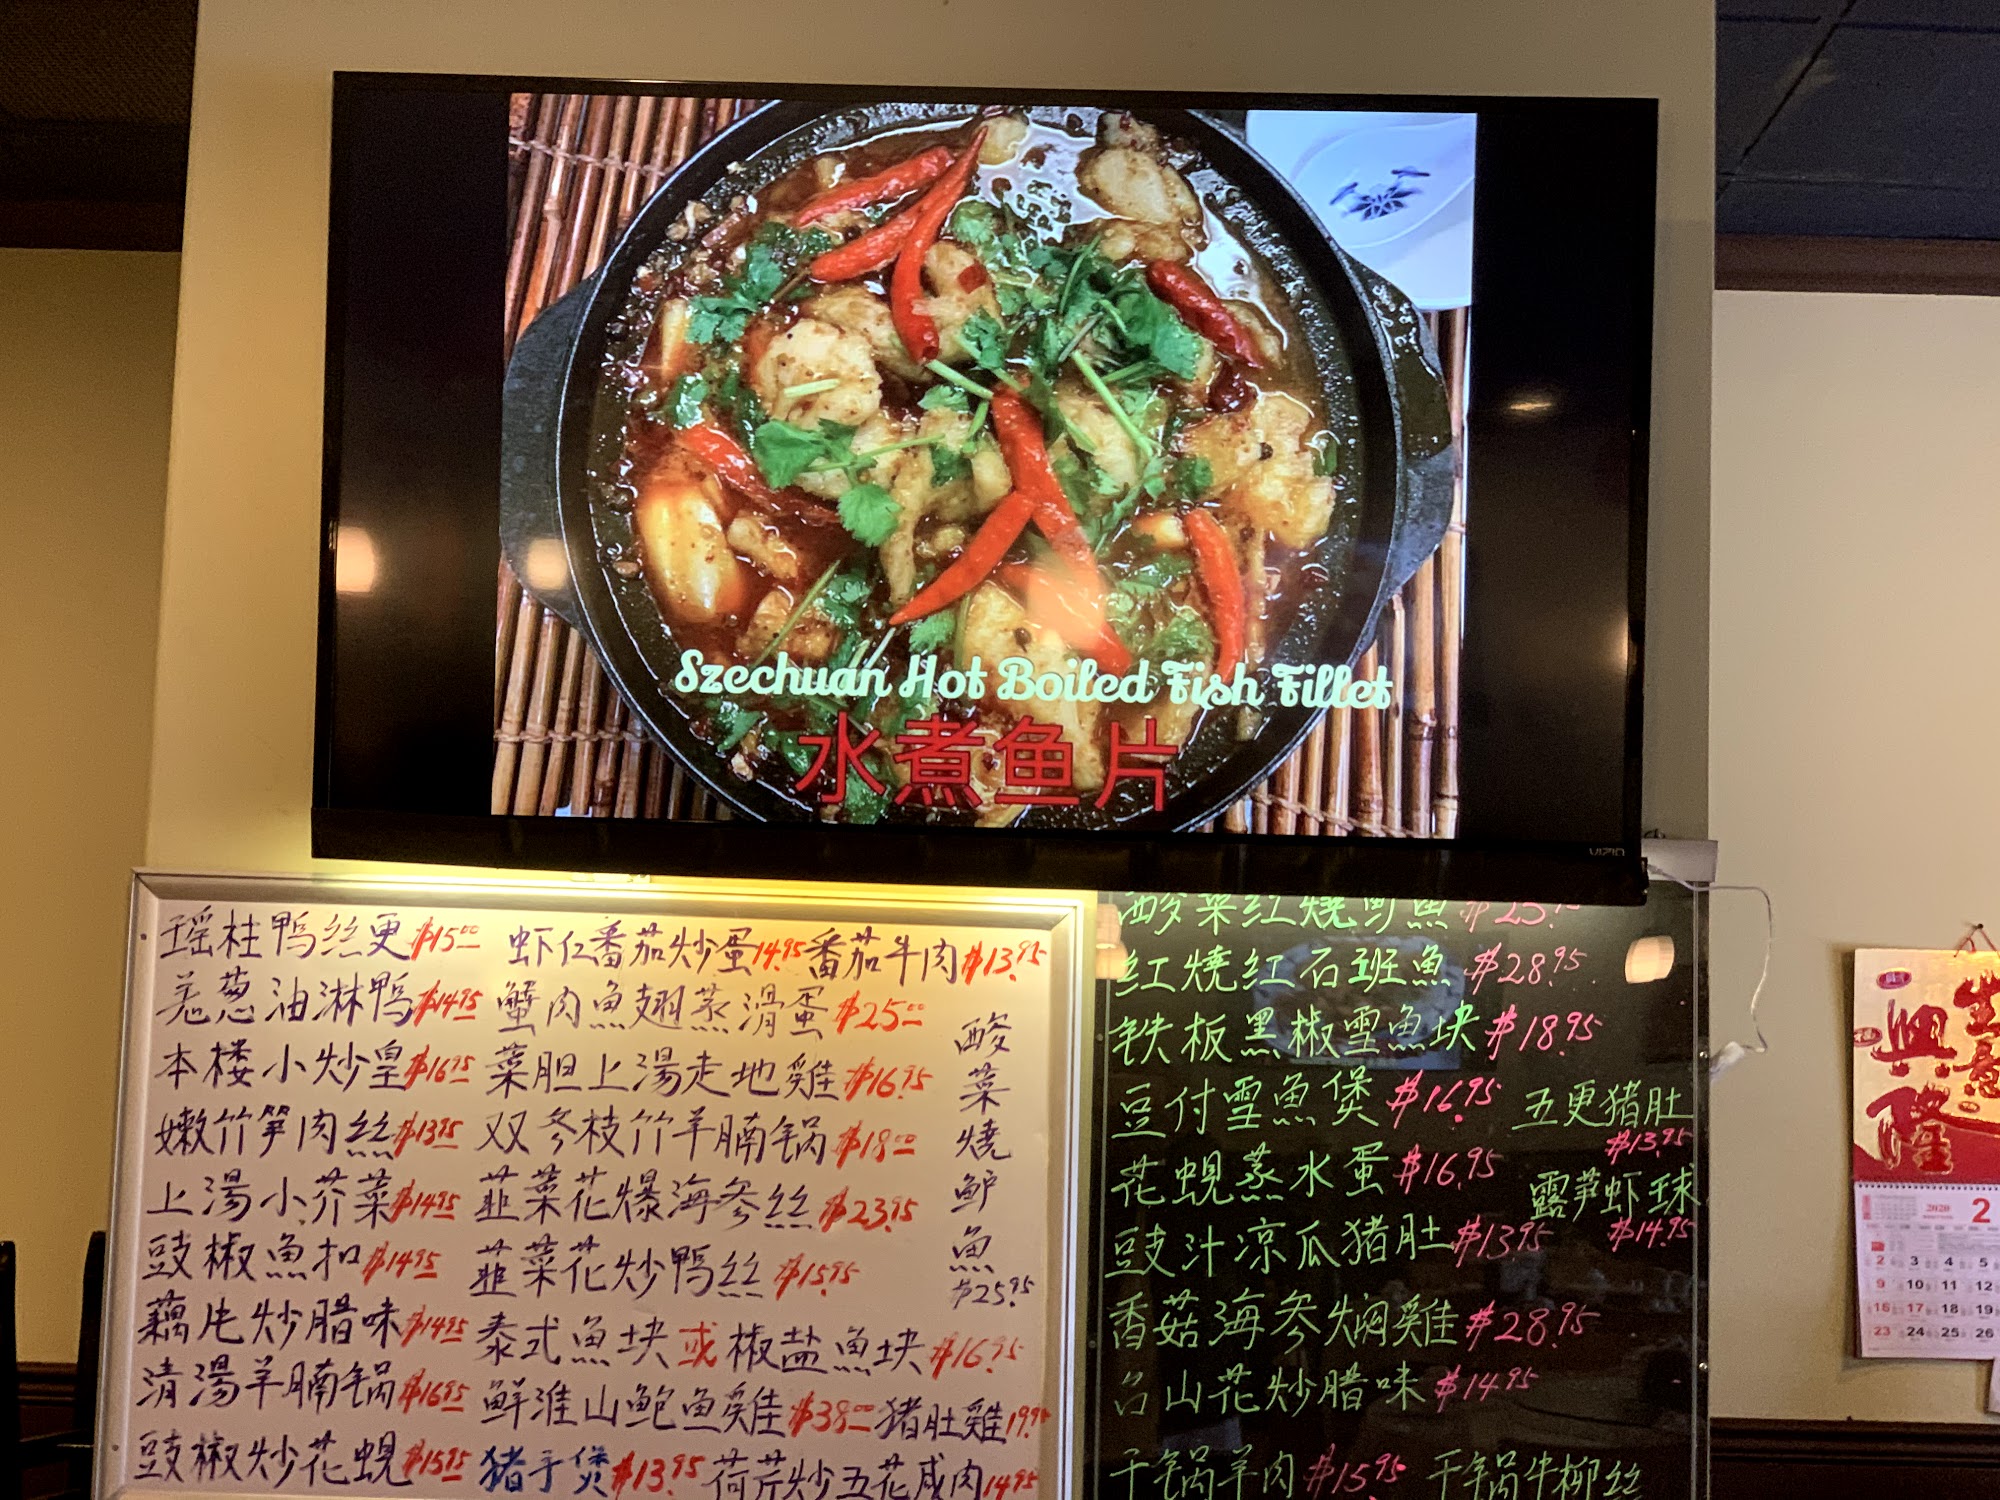 Szechuan Hot Boiled Fish Fillet
水煮鱼片
VIZIO
瑶柱鴨丝更 $15.00
羌葱油淋鴨 $14.95
本楼小炒皇 $16.95
嫩竹笋肉絲 $13.95
上湯小芥菜 $14.95
豉椒魚扣 $14.95
藕片炒腊味 $14.95
清湯羊腩锅 $16.95
豉椒炒花蜆 $15.95
虾仁番茄炒蛋 14.95 番茄牛肉 $13.95
蟹肉魚翅蒸滑蛋 $25.00
菜胆上湯走地雞 $16.95
双冬枝竹羊腩锅 $18.00
韮菜花爆海参丝 $23.95
韮菜花炒鴨丝 $15.95
泰式魚块或椒盐魚块 $16.95
鲜淮山鲍魚雞 $38.00 猪肚雞 19.95
猪手煲 $13.95 荷芹炒五花咸肉 14.95
酸菜燒鲈魚 $25.95
紅燒红石班魚 $28.95
铁板黑椒雪魚块 $18.95
豆付雪魚煲 $16.95
花蜆蒸水蛋 $16.95
豉汁凉瓜猪肚 $13.95
香菇海参焖雞 $28.95
台山花炒腊味 $14.95
干锅羊肉 $15.95 干锅牛柳丝
五更猪肚
$13.95
露笋虾球
$14.95
生意
興隆
2020 2
2 3 4 5
9 10 11 12
16 17 18 19
23 24 25 26